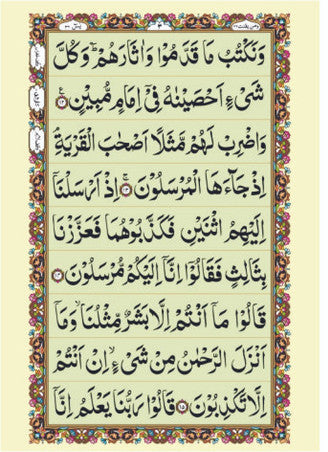 وَنَكْتُبُ مَا قَدَّمُوْا وَاٰثَارَهُمْ ؕ وَكُلَّ
شَیْءٍ اَحْصَیْنٰهُ فِیْۤ اِمَامٍ مُّبِیْنٍ ۝۱۲
وَاضْرِبْ لَهُمْ مَّثَلًا اَصْحٰبَ الْقَرْیَةِ ۘ
اِذْ جَآءَهَا الْمُرْسَلُوْنَ ۝۱۳ اِذْ اَرْسَلْنَاۤ
اِلَیْهِمُ اثْنَیْنِ فَكَذَّبُوْهُمَا فَعَزَّزْنَا
بِثَالِثٍ فَقَالُوْۤا اِنَّاۤ اِلَیْكُمْ مُّرْسَلُوْنَ ۝۱۴
قَالُوْا مَاۤ اَنْتُمْ اِلَّا بَشَرٌ مِّثْلُنَا ۙ وَمَاۤ
اَنْزَلَ الرَّحْمٰنُ مِنْ شَیْءٍ ۙ اِنْ اَنْتُمْ
اِلَّا تَكْذِبُوْنَ ۝۱۵ قَالُوْا رَبُّنَا یَعْلَمُ اِنَّاۤ